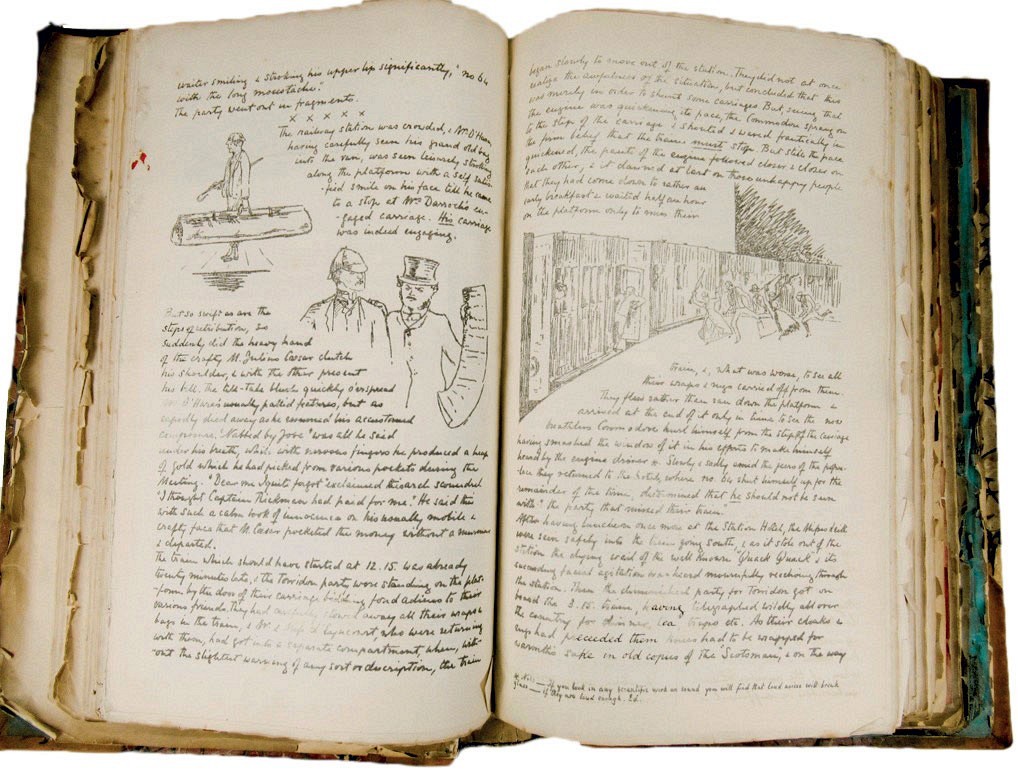 waiter smiling & stroking his upper lip significantly, "no 64
with the long moustache."
The party went out in fragments.
x x x x x
The railway station was crowded, & Mr. O'Hara,
having carefully seen his grand old bag
into the van, was seen leisurely strolling
along the platform with a self satis-
-fied smile on his face till he came
to a stop at Mrs Darroch's en-
gaged carriage. His carriage
was indeed engaging.
But so swift as are the
steps of retribution, so
suddenly did the heavy hand
of the crafty M. Julius Caesar clutch
his shoulder, & with the other present
his bill. The tell-tale blush quickly o'erspread
O'Hara's usually pallid features, but as
rapidly died away as he resumed his accustomed
composure. "Nabbed by Jove" was all he said
under his breath, while with nervous fingers he produced a heap
of gold which he had picked from various pockets during the
Meeting. "Dear me I quite forgot" exclaimed this arch scoundrel
"I thought Captain Rickman had paid for me." He said this
with such a calm look of innocence on his usually mobile &
crafty face that M. Caesar pocketed the money without a murmur
& departed.
The train which should have started at 12.15. was already
twenty minutes late, & the Torridon party were standing on the plat-
form by the door of their carriage bidding fond adieus to their
various friends. They had carefully stowed away all their wraps &
bags in the train, & Mr. & who were returning
with them, had got into a separate compartment, when, with-
-out the slightest warning of any sort or description, the train
began slowly to move out of the station. They did not at once
realize the awfulness of the situation, but concluded that this
was merely in order to shunt some carriages. But seeing that
the engine was quickening its pace, the Commodore sprang on
to the step of the carriage & shouted & waved frantically in
the firm belief that the train must stop. But still the pace
quickened, the pants of the engine followed closer & closer on
each other, & it dawned at last on those unhappy people
that they had come down to rather an
early breakfast & waited half an hour
on the platform only to miss their
train, &, what was worse, to see all
their wraps & rugs carried off from them.
They flew rather than ran down the platform &
arrived at the end of it only in time to see the now
breathless Commodore hurl himself from the step of the carriage
having smashed the window of it in his efforts to make himself
heard by the engine driver *. Slowly & sadly amid the jeers of the popu-
lace they returned to the Hotel, where no. 64 shut himself up for the
remainder of the time, determined that he should not be seen
with "the party that missed their train."
After having luncheon once more at the Station Hotel, the
were seen safely into the train going south, & as it stole out of the
station the dying wail of the well known "Quack Quack" & its
succeeding facial agitation was heard mournfully echoing through
the station. Then the diminished party for Torridon got on
board the 3.15. train, having telegraphed wildly all over
the country for dinner, tea, traps etc. As their cloaks &
rugs had preceded them knees had to be wrapped for
warmth's sake in old copies of the "Scotsman", & on the way
* Note — If you look in any scientific work on sound you will find that loud noises will break
glass — if they are loud enough. Ed.